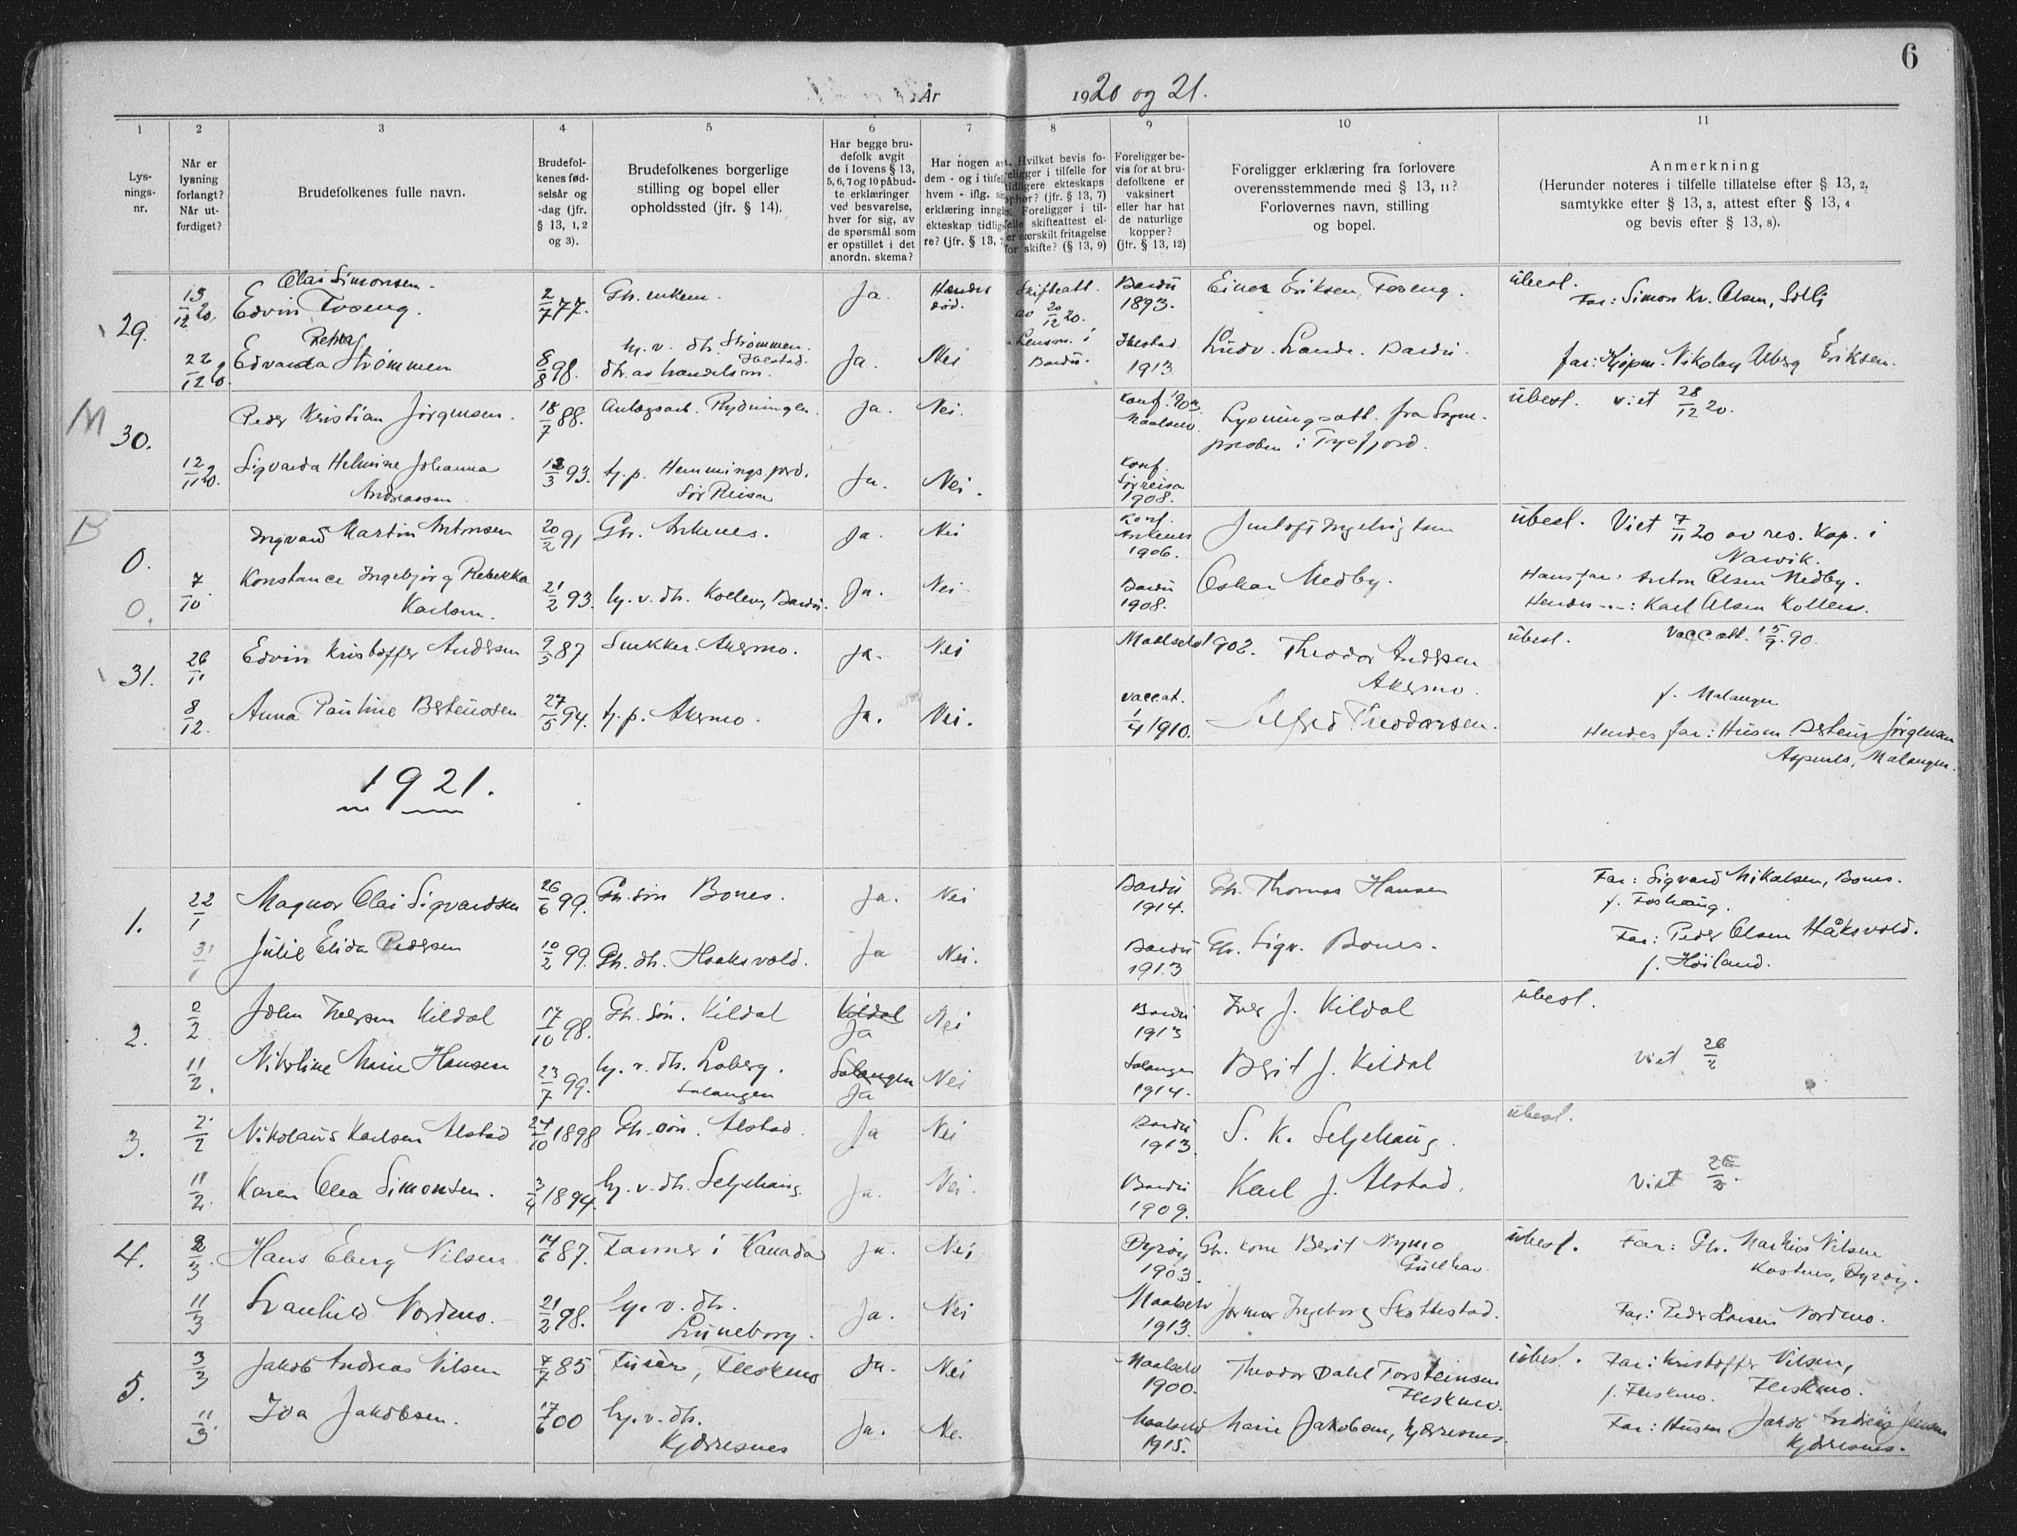 6
År 1920 og 21.
1 2 3 4 5 6 7 8 9 10 11
Lysningsnr.
Når er lysning forlangt? Når utferdiget?
Brudefolkenes fulle navn.
Brudefolkenes fødselsår og -dag (jfr. § 13, 1, 2 og 3).
Brudefolkenes borgerlige stilling og bopel eller opholdssted (jfr. § 14).
Har begge brudefolk avgit de i lovens § 13, 5, 6, 7 og 10 påbudte erklæringer ved besvarelse, hver for sig, av de spørsmål som er opstillet i det anordn. skema?
Har nogen av dem - og i tilfelle hvem - iflg.
erklæring inngått
ekteskap tidligere? (jfr. § 13, 7
Hvilket bevis foreligger i tilfelle for tidligere ekteskaps ophør? (jfr. § 13, 7) Foreligger i tilfelle skifteattest eller særskilt fritagelse for skifte? (§ 13, 9)
Foreligger bevis for at brudefolkene er vaksinert eller har hat de naturlige kopper? (jfr. § 13, 12)
Foreligger erklæring fra forlovere overensstemmende med § 13, 11? Forlovernes navn, stilling og bopel.
Anmerkning
(Herunder noteres i tilfelle tillatelse efter § 13, 2, samtykke efter § 13, 3, attest efter § 13, 4 og bevis efter § 13, 8).
29. 15/12 20. Olai Simonsen.
Edvin Foseng. 2/7 77. Gb. enkem. Ja. Hendes død. Skifteatt. av 20/12 20. Bardu 1893. Einar Eriksen, Foseng. übest. Far: Simon Kr. Olsen, Solli
22/12 20. Petra
Edvarda Strømmen 8/8 98. hj. v. dh. Strømmen. Ibestad. dtr. av handelsm. Ja. Nei Lensm. i Bardu. Ibestad 1913. Ludv. Lande. Bardu. far: Kjøpm. Nikolay Alberg Eriksen.
M 30. Peder Kristian Jørgensen. 18/7 88. Anlægsarb. Rydningen. Ja. Nei. Konf. 1903 Maalselv. Lysningsatt. fra Sogneprosten i Trysfjord. übest. viet 28/12 20.
12/11 20. Sigvarda Helmine Johanna Andreassen. 12/3 93. tj. p. Hemmingsjord. Sør Reisa Ja. Nei. Konf. Sørreisa 1908.
B 0. Ingvard Martin Antonsen 20/2 91 Gb. Ankenes. Ja. Nei Konf. Ankenes 1906. übest. Viet 7/11 20 av res. Kap. i Narvik.
0. 7/10. Konstance Ingebjørg Rebekka Karlsen. 21/2 93. hj. v. dh. Kollen, Bardu. Ja. Nei Bardu 1908. Oskar Medby. Hans far: Anton Olsen Medby.
Hendes -..-: Karl Olsen Kollen.
31. 26/11 Edvin Kristoffer Andersen 9/5 87 Snekker. Akermo. Ja. Nei Maalselv 1902. Theodor Andersen Akermo. übest. Vacc.att. 15/9. 90.
8/12. Anna Pauline Berteussen 27/5 94. tj. p. Akermo. Ja. Nei. vaccat. 1/4 1910. Alfred Theodorsen. f. Malangen
Hendes far: Husm Berteus Jørgensen Aspenes, Malangen.
1921.
1. 22/1 Magnor Olai Sigvardsen 26/6 99. Gb. søn Bones. Ja. Nei Bardu 1914. Gb. Thomas Hansen Far: Sigvard Nikolsen, Bones. f. Foshaug.
31/1 Julie Elida Pedersen 10/2 99. Gb. dh. Haaksvold. Ja Nei. Bardu 1913 Gb. Sigv. Bones. Far: Peder Olsen Håksvold. f. Høiland.
2. 2/2 John Iversen Kildal 17/10 98. Gb. søn. Kildal Kildal Ja Nei Bardu 1913 Iver J. Kildal übest.
11/2. Nikoline Marie Hansen 23/7 99. hj. v. dh. Løberg. Salangen Salangen Ja Nei Salangen 1914. Berit J. Kildal Viet 26/2
3. 2/2 Nikolaus Karlsen Alstad 24/10 1898 Gb. søn. Alstad. Ja Nei Bardu 1913. S. K. Seljehaug. übest.
11/2. Karen Olea Simonsen. 3/4 1894. hj. v. dh. Seljehaug Ja. Nei. Bardu 1909. Karl J. Alstad. Viet 26/2.
4. 2/3. Hans Eberg Nilsen 14/6 87. Farmer i Kanada Ja. Nei Dyrøy 1903. Gb. kone Berit Nymo Gullhav. übest. Far: Gb. Markus Nilsen Kastnes, Dyrøy.
11/3 Svanhild Nordmo. 21/2 98. hj. v. dh. Luneborg. Ja. Nei Maalselv 1913. Jormor Ingeborg Skottestad. Far: Peder Larsen Nordmo.
5. 3/3 Jakob Andreas Nilsen 7/7 85 Fisker, Fleskmo Ja. Nei Maalselv 1900. Theodor Dahl Torsteinsen Fleskmo. übest. Far: Kristoffer Nilsen, Fleskmo. f. Fleskmo.
11/3 Ida Jakobsen. 17/6 00 hj. v. dh. Kjerresnes Ja. Nei. Maalselv 1915. Marie Jakobsen, Kjerresnes. Far: Husm Jakob Andreas Jensen Kjerresnes.